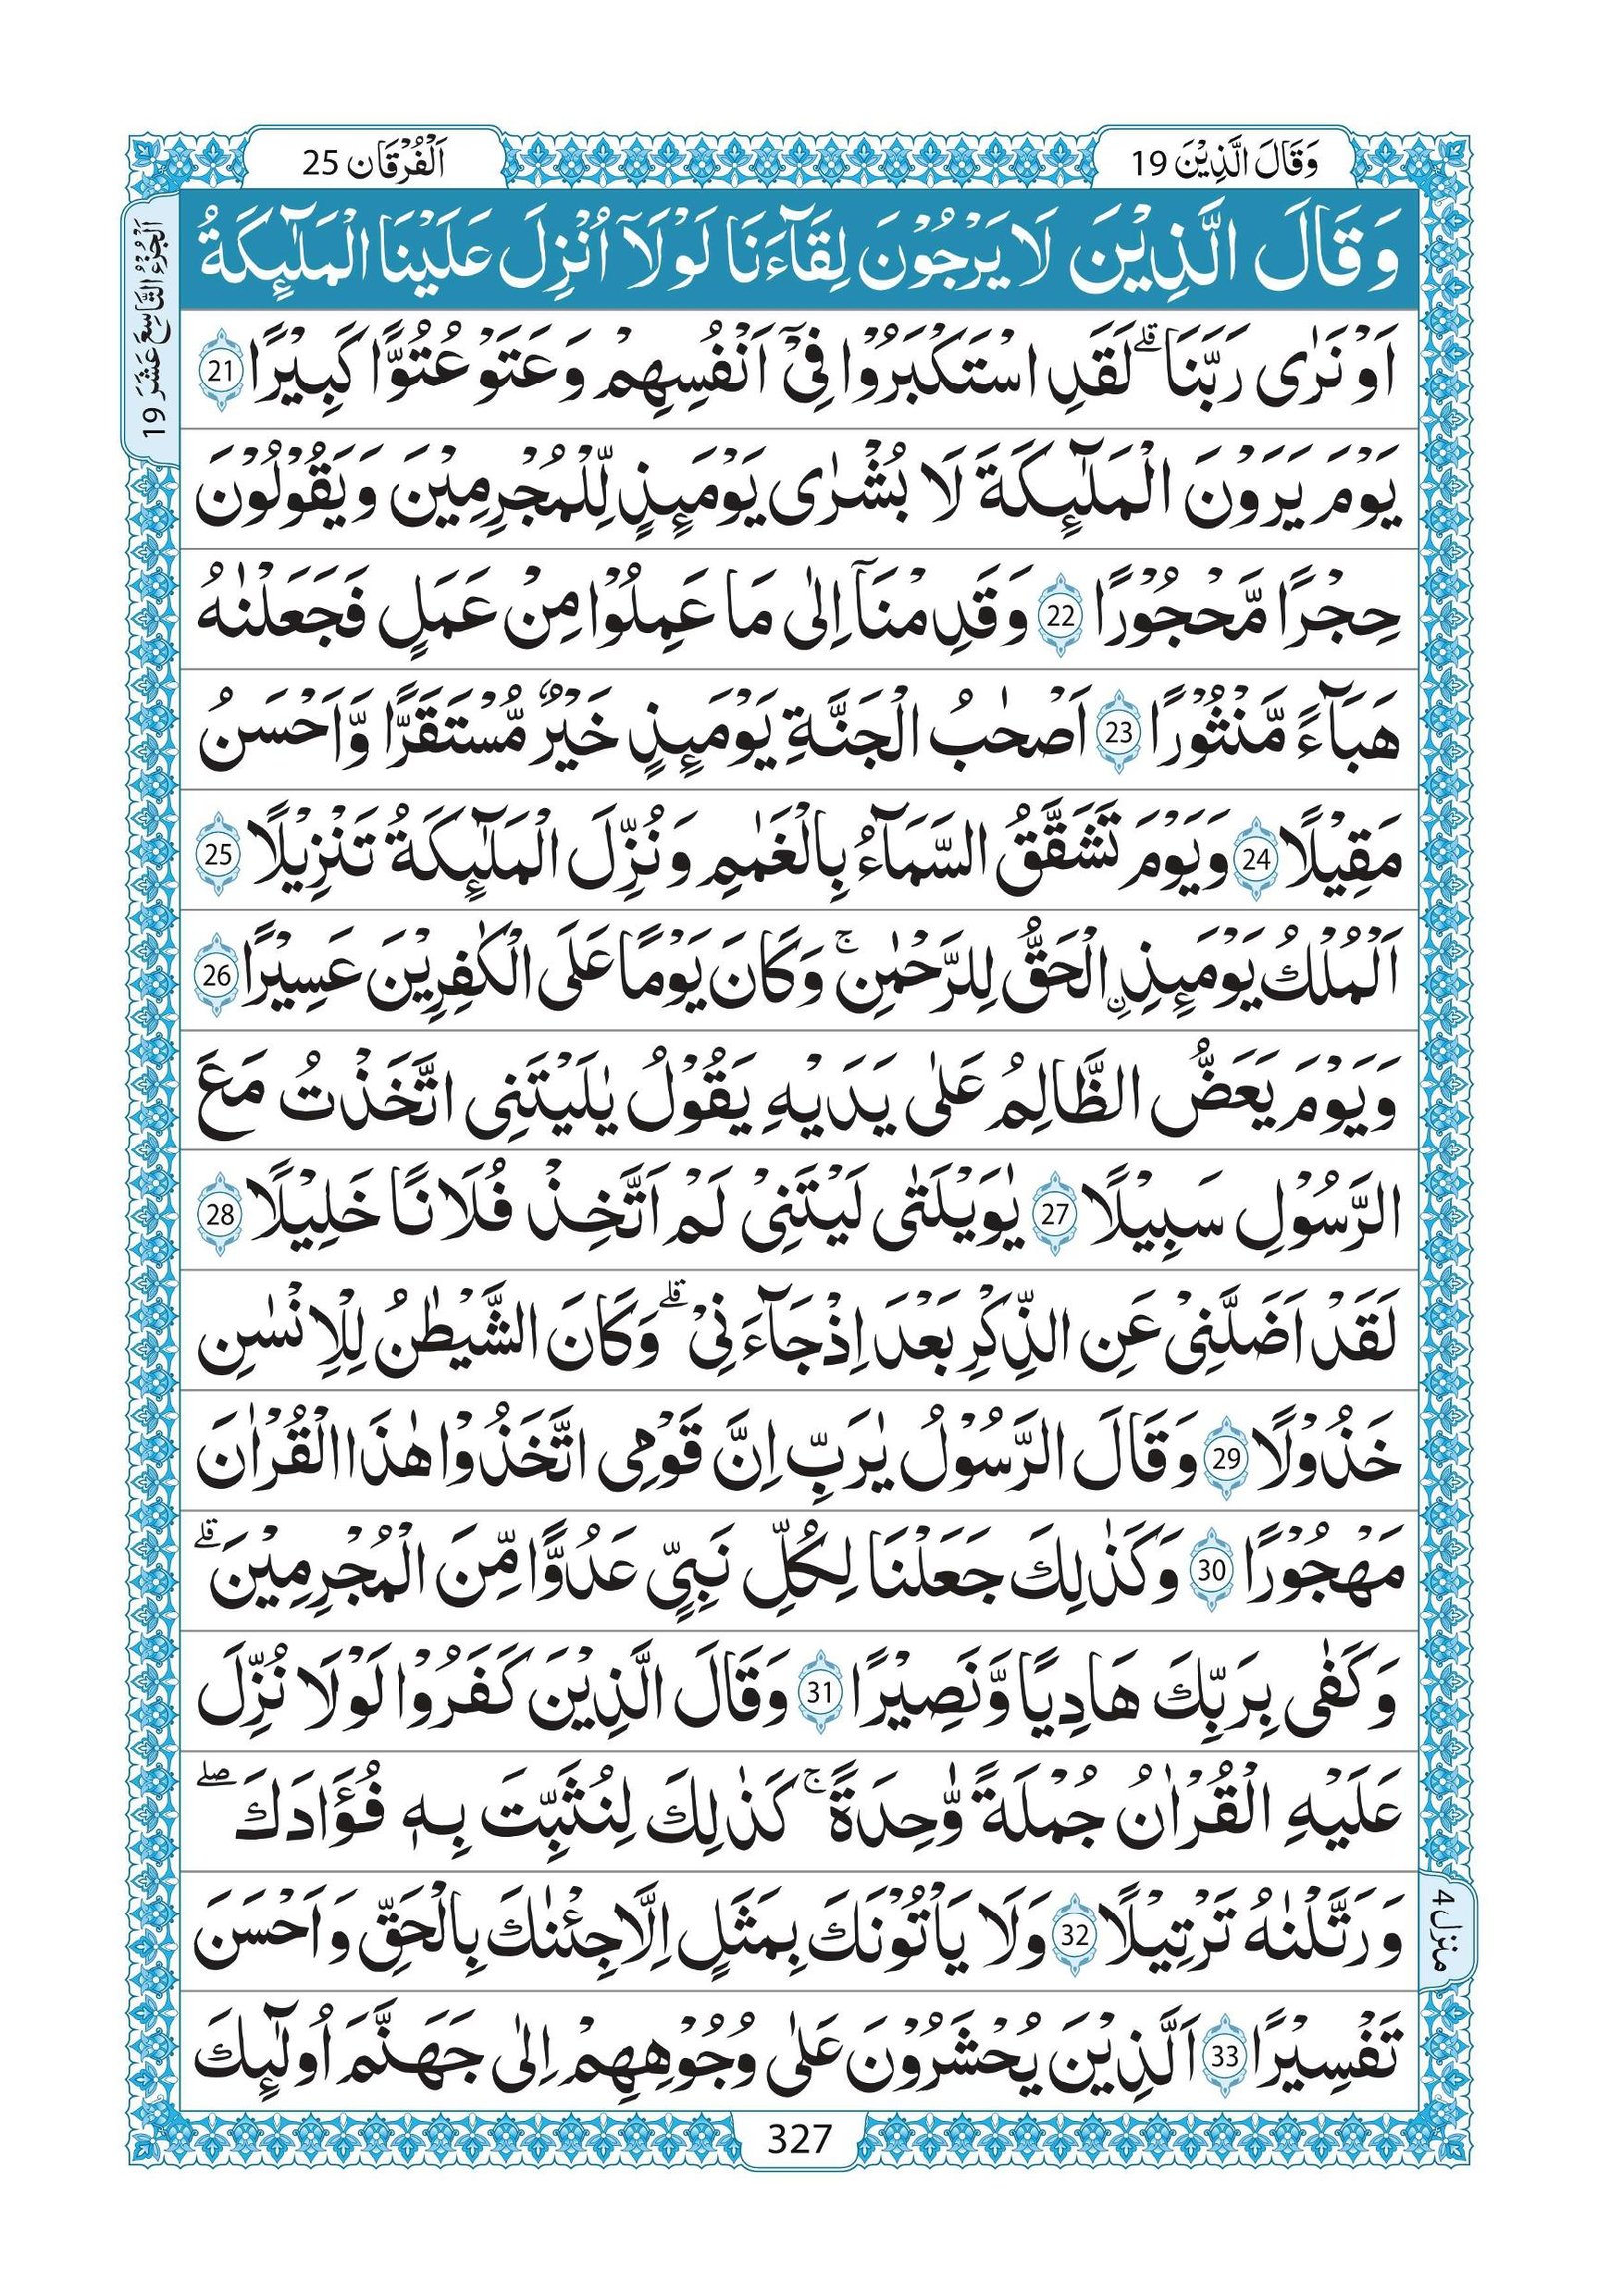 وَقَالَ الَّذِيْنَ 19
اَلْفُرْقَان 25
اَلْجُزْءُ التَّاسِعَ عَشَرَ 19
وَ قَالَ الَّذِيْنَ لَا يَرْجُوْنَ لِقَآءَنَا لَوْلَاۤ اُنْزِلَ عَلَيْنَا الْمَلٰٓئِكَةُ
اَوْ نَرٰى رَبَّنَا ؕ لَقَدِ اسْتَكْبَرُوْا فِیْۤ اَنْفُسِهِمْ وَ عَتَوْ عُتُوًّا كَبِيْرًا 21
يَوْمَ يَرَوْنَ الْمَلٰٓئِكَةَ لَا بُشْرٰى يَوْمَئِذٍ لِّلْمُجْرِمِيْنَ وَ يَقُوْلُوْنَ
حِجْرًا مَّحْجُوْرًا 22 وَ قَدِمْنَاۤ اِلٰى مَا عَمِلُوْا مِنْ عَمَلٍ فَجَعَلْنٰهُ
هَبَآءً مَّنْثُوْرًا 23 اَصْحٰبُ الْجَنَّةِ يَوْمَئِذٍ خَيْرٌ مُّسْتَقَرًّا وَّ اَحْسَنُ
مَقِيْلًا 24 وَ يَوْمَ تَشَقَّقُ السَّمَآءُ بِالْغَمٰمِ وَ نُزِّلَ الْمَلٰٓئِكَةُ تَنْزِيْلًا 25
اَلْمُلْكُ يَوْمَئِذِ ِۨالْحَقُّ لِلرَّحْمٰنِ ۚ وَ كَانَ يَوْمًا عَلَى الْكٰفِرِيْنَ عَسِيْرًا 26
وَ يَوْمَ يَعَضُّ الظَّالِمُ عَلٰى يَدَيْهِ يَقُوْلُ يٰلَيْتَنِى اتَّخَذْتُ مَعَ
الرَّسُوْلِ سَبِيْلًا 27 يٰوَيْلَتٰى لَيْتَنِیْ لَمْ اَتَّخِذْ فُلَانًا خَلِيْلًا 28
لَقَدْ اَضَلَّنِیْ عَنِ الذِّكْرِ بَعْدَ اِذْ جَآءَنِیْ ۗ وَ كَانَ الشَّيْطٰنُ لِلْاِنْسٰنِ
خَذُوْلًا 29 وَ قَالَ الرَّسُوْلُ يٰرَبِّ اِنَّ قَوْمِى اتَّخَذُوْا هٰذَا الْقُرْاٰنَ
مَهْجُوْرًا 30 وَ كَذٰلِكَ جَعَلْنَا لِكُلِّ نَبِیٍّ عَدُوًّا مِّنَ الْمُجْرِمِيْنَ ۗ
وَ كَفٰى بِرَبِّكَ هَادِيًا وَّ نَصِيْرًا 31 وَ قَالَ الَّذِيْنَ كَفَرُوْا لَوْلَا نُزِّلَ
عَلَيْهِ الْقُرْاٰنُ جُمْلَةً وّٰحِدَةً ۚ كَذٰلِكَ لِنُثَبِّتَ بِهٖ فُؤَادَكَ ۖ
وَ رَتَّلْنٰهُ تَرْتِيْلًا 32 وَ لَا يَاْتُوْنَكَ بِمَثَلٍ اِلَّا جِئْنٰكَ بِالْحَقِّ وَ اَحْسَنَ
تَفْسِيْرًا 33 اَلَّذِيْنَ يُحْشَرُوْنَ عَلٰى وُجُوْهِهِمْ اِلٰى جَهَنَّمَ اُولٰٓئِكَ
منزل 4
327